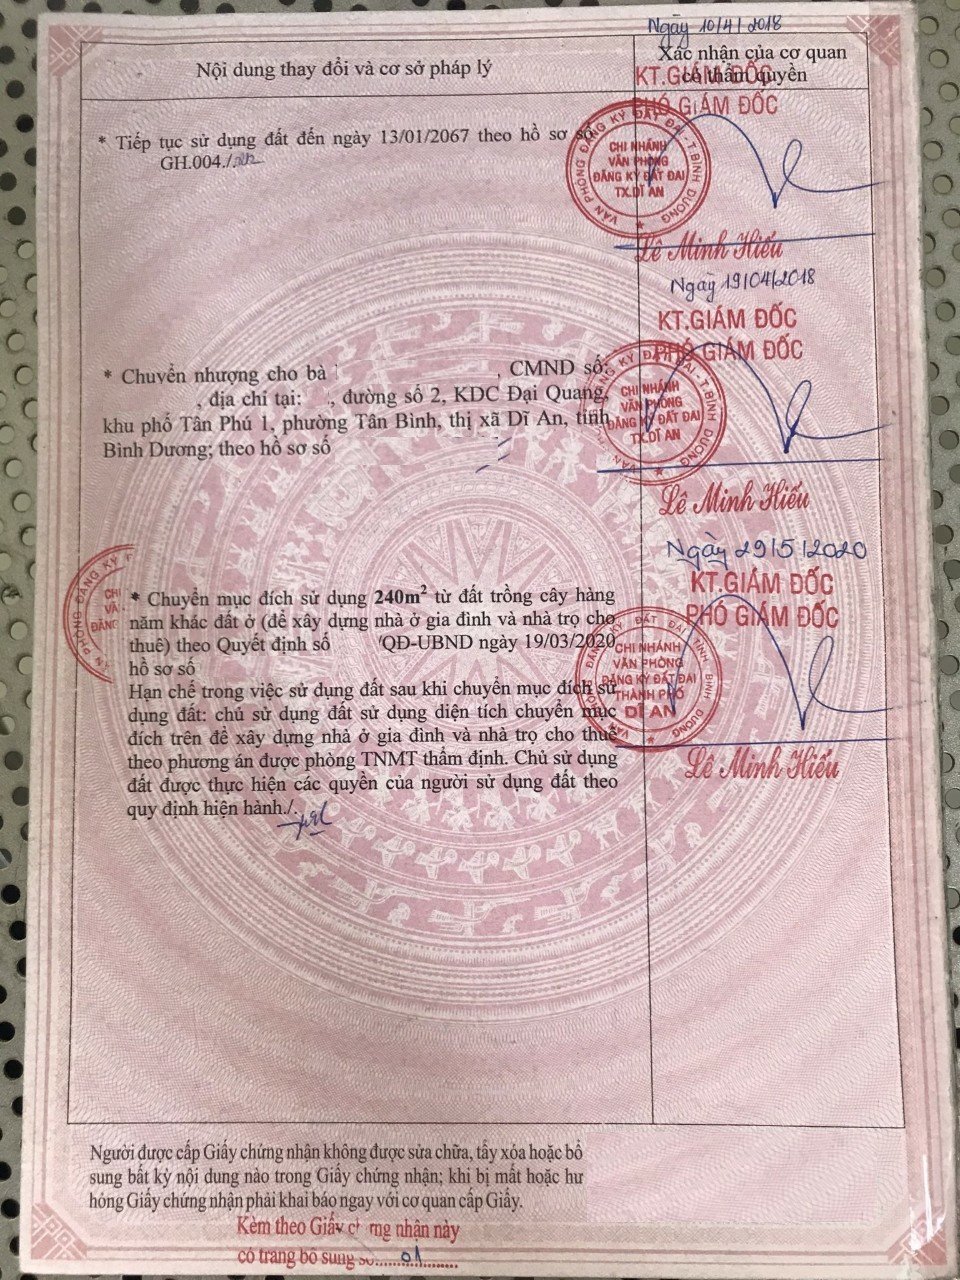 Ngày 10/4/2018
Nội dung thay đổi và cơ sở pháp lý
Xác nhận của cơ quan
có thẩm quyền
KT.GIÁM ĐỐC
PHÓ GIÁM ĐỐC
* Tiếp tục sử dụng đất đến ngày 13/01/2067 theo hồ sơ số
GH.004./
VĂN PHÒNG ĐĂNG KÝ ĐẤT ĐAI - T.BÌNH DƯƠNG
CHI NHÁNH
VĂN PHÒNG
ĐĂNG KÝ ĐẤT ĐAI
TX.DĨ AN
Lê Minh Hiếu
Ngày 19/04/2018
KT.GIÁM ĐỐC
PHÓ GIÁM ĐỐC
* Chuyển nhượng cho bà , CMND số:
, địa chỉ tại: , đường số 2, KDC Đại Quang,
khu phố Tân Phú 1, phường Tân Bình, thị xã Dĩ An, tỉnh
Bình Dương; theo hồ sơ số
CHI NHÁNH
VĂN PHÒNG
ĐĂNG KÝ ĐẤT ĐAI
TX.DĨ AN
Lê Minh Hiếu
Ngày 29/5/2020
KT.GIÁM ĐỐC
PHÓ GIÁM ĐỐC
* Chuyển mục đích sử dụng 240m² từ đất trồng cây hàng
năm khác đất ở (để xây dựng nhà ở gia đình và nhà trọ cho
thuê) theo Quyết định số /QĐ-UBND ngày 19/03/2020
hồ sơ số
Hạn chế trong việc sử dụng đất sau khi chuyển mục đích sử
dụng đất: chủ sử dụng đất sử dụng diện tích chuyển mục
đích trên để xây dựng nhà ở gia đình và nhà trọ cho thuê
theo phương án được phòng TNMT thẩm định. Chủ sử dụng
đất được thực hiện các quyền của người sử dụng đất theo
quy định hiện hành./.
CHI NHÁNH
VĂN PHÒNG
ĐĂNG KÝ ĐẤT ĐAI
THÀNH PHỐ
DĨ AN
Lê Minh Hiếu
Người được cấp Giấy chứng nhận không được sửa chữa, tẩy xóa hoặc bổ
sung bất kỳ nội dung nào trong Giấy chứng nhận; khi bị mất hoặc hư
hỏng Giấy chứng nhận phải khai báo ngay với cơ quan cấp Giấy.
Kèm theo Giấy chứng nhận này
có trang bổ sung số.......01.......